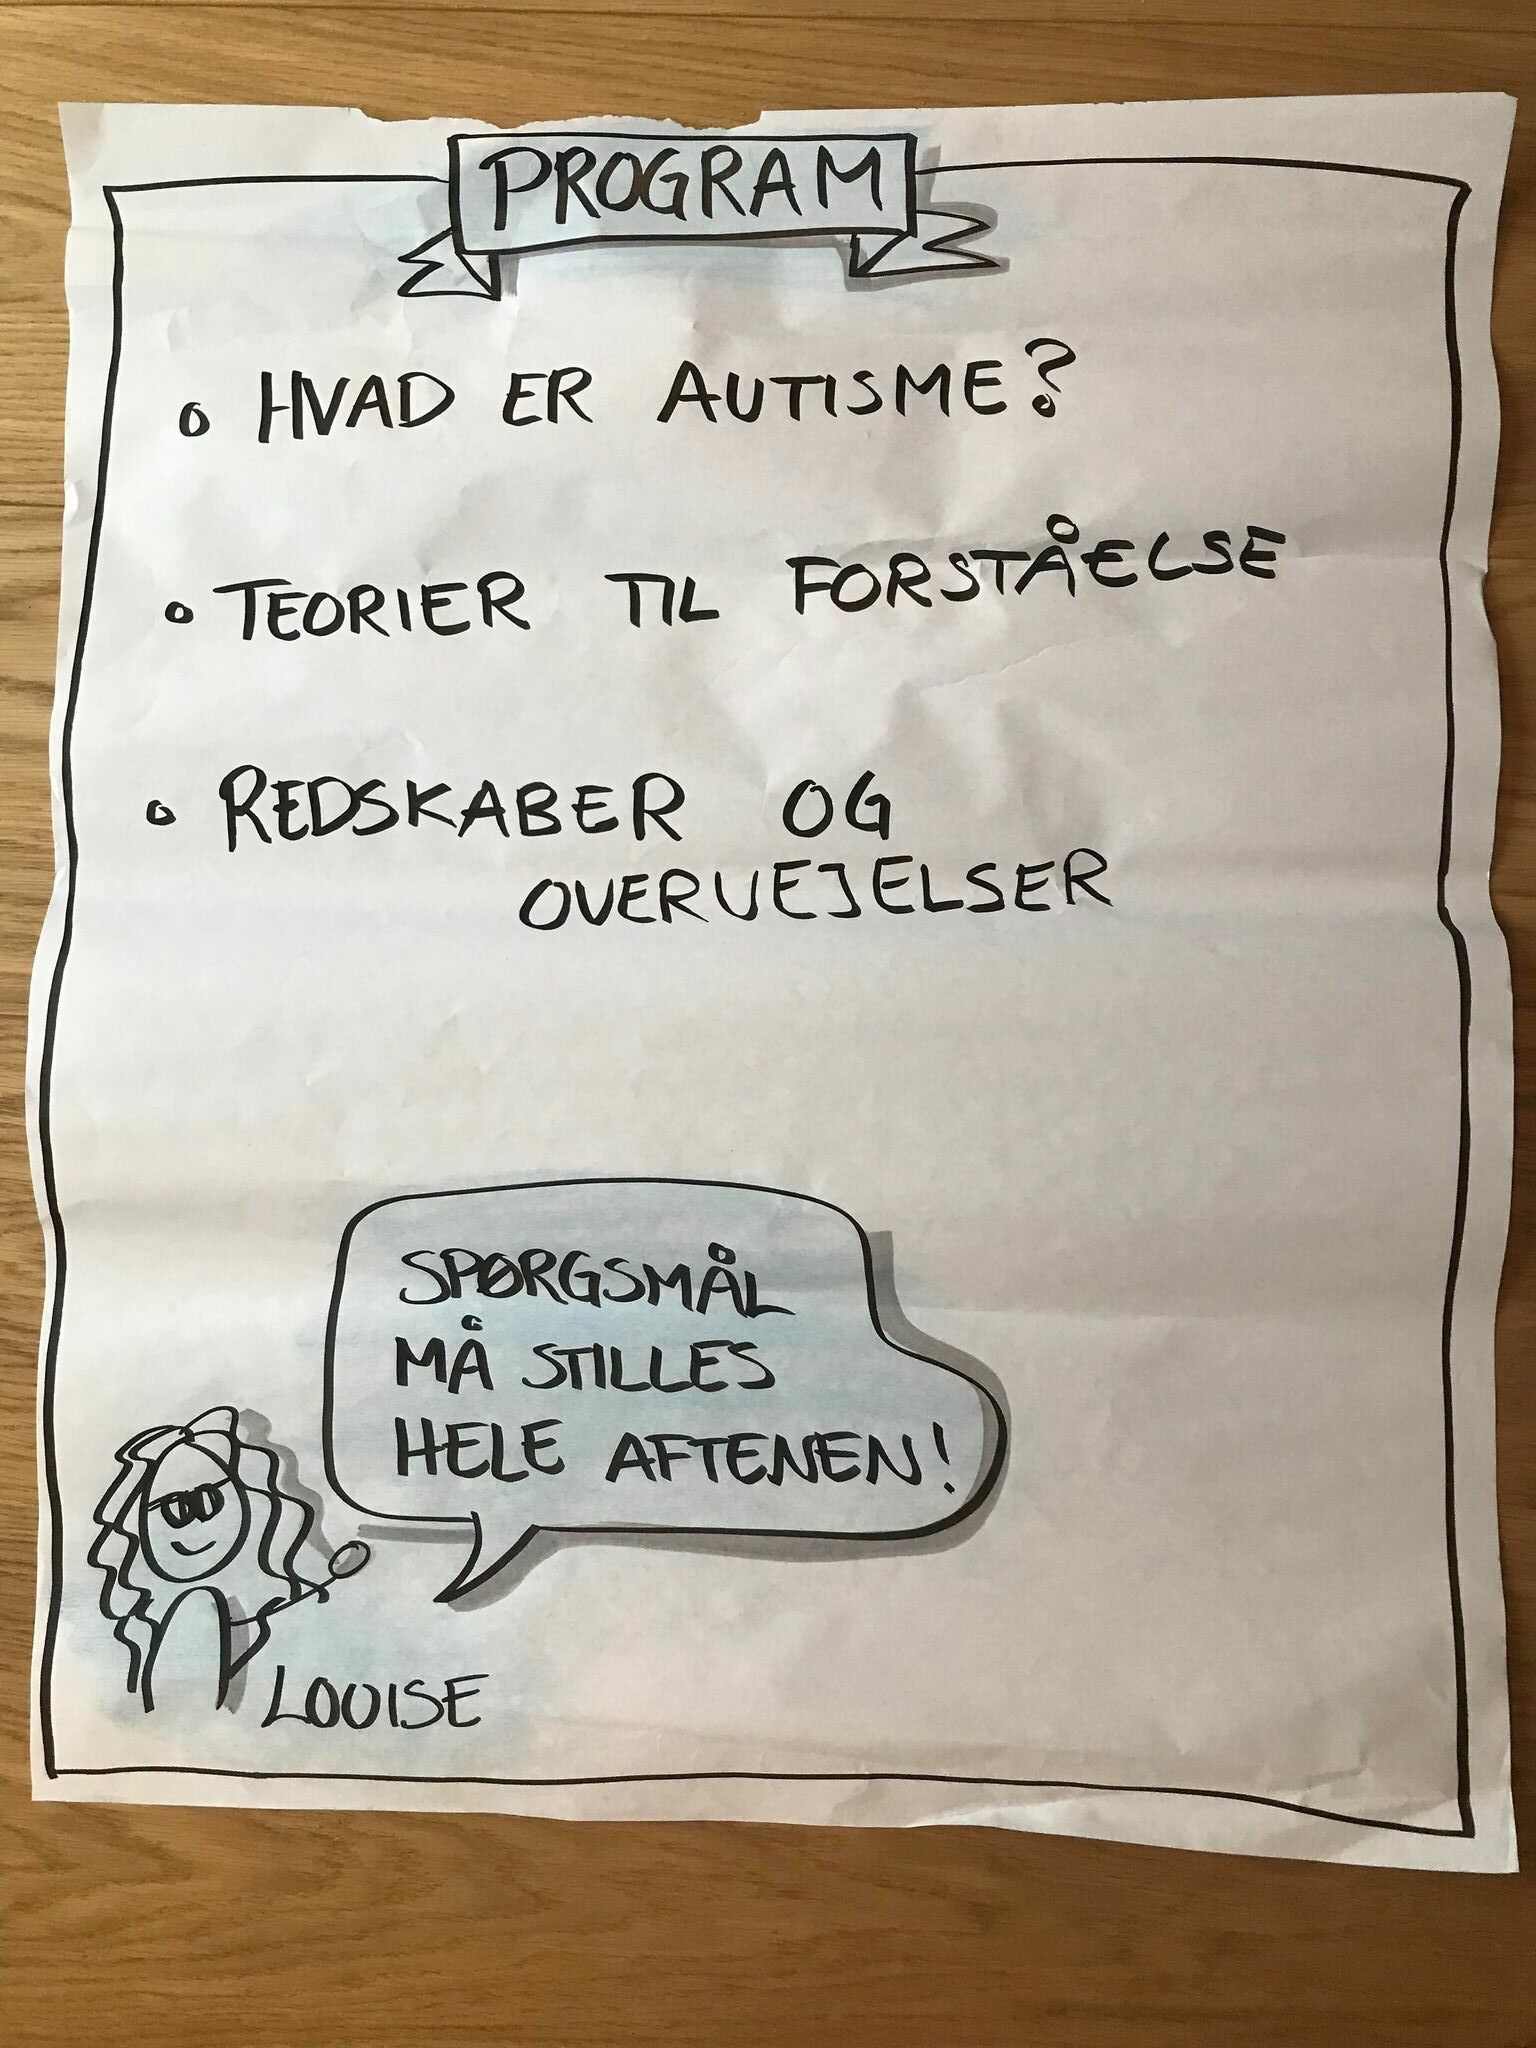 PROGRAM
o HVAD ER AUTISME?
o TEORIER TIL FORSTÅELSE
o REDSKABER OG
OVERVEJELSER
SPØRGSMÅL
MÅ STILLES
HELE AFTENEN!
LOUISE